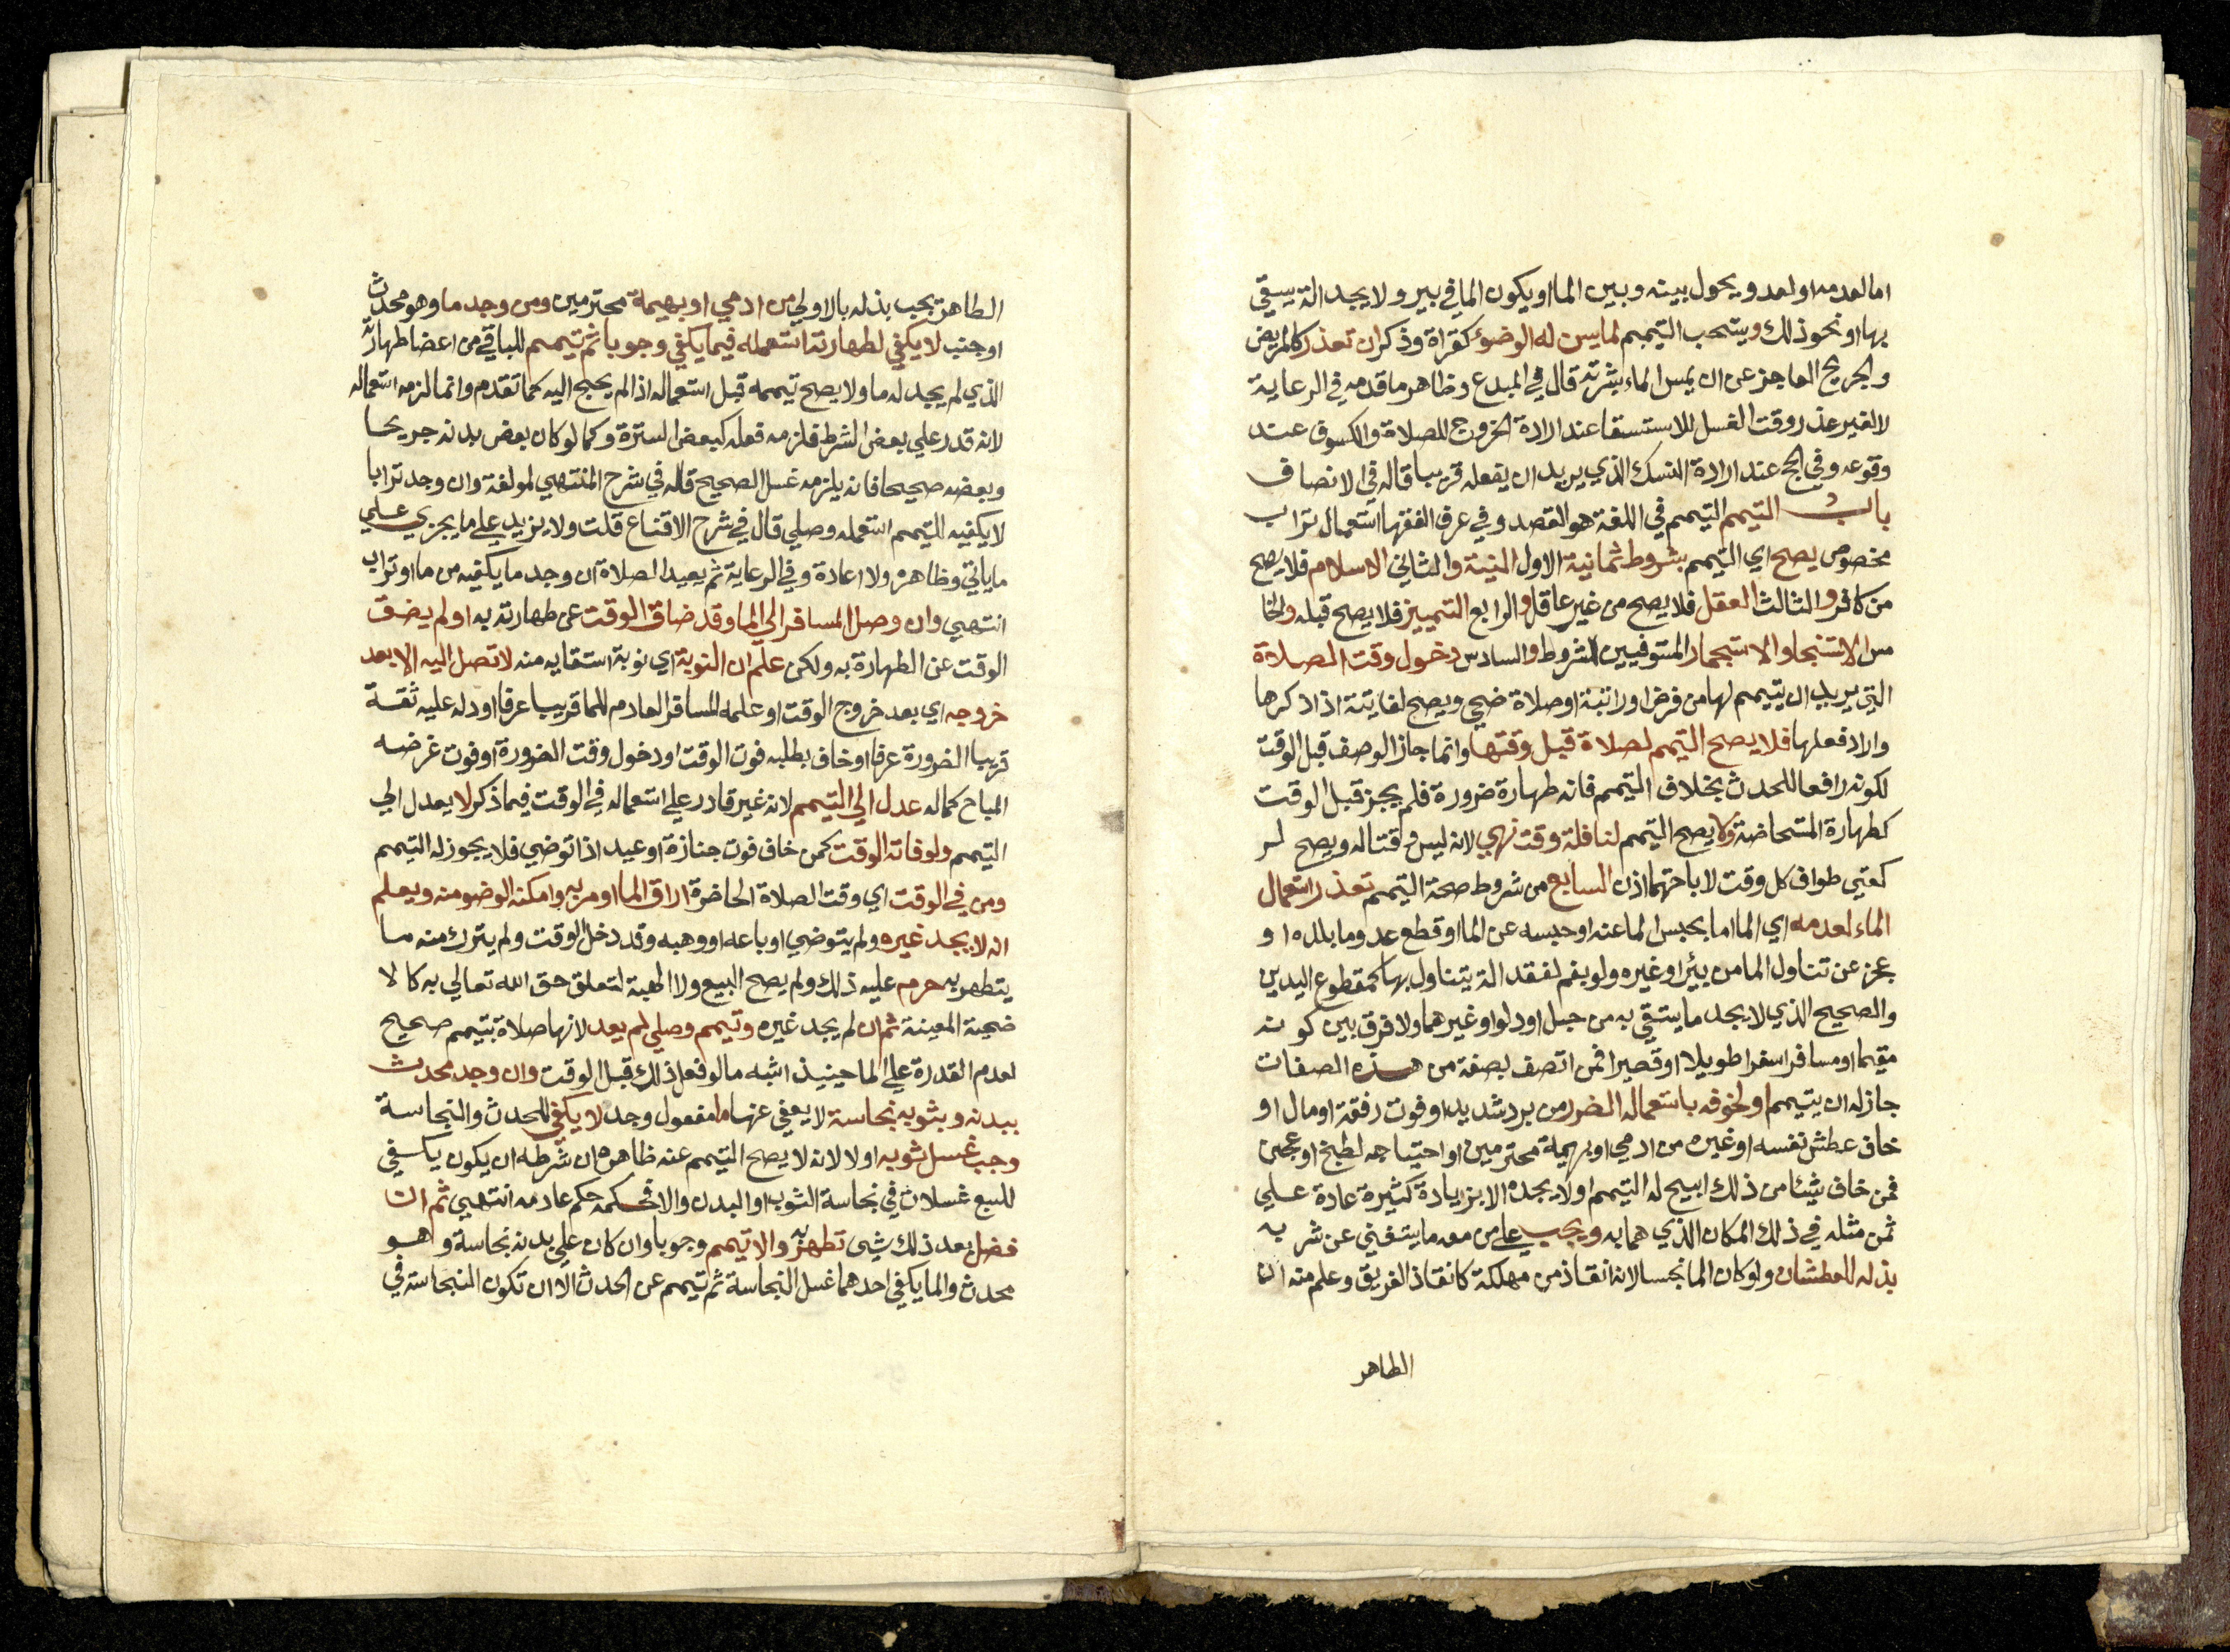 اما لعدمه او لعدو يحول بينه وبين الما او يكون الما في بير ولا يجد الة يستقي
بها او نحو ذلك ويستحب التيمم لما يسن له الوضوء كقراة وذكر ان تعذر كالمريض
والجريح العاجز عن ان يمس الماء بشرته قال في المبدع وظاهر ما قدمه في الرعاية
لا لغير عذر ووقت الغسل للاستسقا عند ارادة الخروج للصلاة والكسوف عند
وقوعه وفي الحج عند ارادة النسك الذي يريد ان يفعله قريبا قاله في الانصاف
باب التيمم التيمم في اللغة هو القصد وفي عرف الفقها استعمال تراب
مخصوص يصح اي التيمم بشروط ثمانية الاول النية والثاني الاسلام فلا يصح
من كافر والثالث العقل فلا يصح من غير عاقل والرابع التمييز فلا يصح قبله والخا
مس الاستنجا والاستجمار المستوفيين للشروط والسادس دخول وقت الصلاة
التي يريد ان يتيمم لها من فرض او راتبة او صلاة ضحي ويصح لفايتة اذا ذكرها
واراد فعلها فلا يصح التيمم لصلاة قبل وقتها وانما جاز الوصف قبل الوقت
لكونه رافعا للحدث بخلاف التيمم فانه طهارة ضرورة فلم يجز قبل الوقت
كطهارة المستحاضة ولا يصح التيمم لنافلة وقت نهي لانه ليس وقتا له ويصح لر
كعتي طواف كل وقت لاباحتهما اذن السابع من شروط صحة التيمم تعذر استعمال
الماء لعدمه اي الما اما بحبس الما عنه او حبسه عن الما او قطع عدو ما بلده او
عجز عن تناول الما من بئر او غيره ولو بفم لفقد الة يتناول بها كمقطوع اليدين
والصحيح الذي لا يجد ما يستقي به من حبل او دلو او غيرهما ولا فرق بين كونه
مقيما او مسافر اسفرا طويلا او قصيرا فمن اتصف بصفة من هذه الصفات
جاز له ان يتيمم او لخوفه باستعماله الضرر من برد شديد او فوت رفقة او مال او
خاف عطش نفسه او غيره من ادمي او بهيمة محترمين او احتياجه لطبخ او عجن
فمن خاف شيئا من ذلك ابيح له التيمم او لا يجده الا بزيادة كثيرة عادة علي
ثمن مثله في ذلك المكان الذي هما به ويجب علي من معه ما يستغني عن شربه
بذله للعطشان ولو كان الما نجسا لانه انقاذ من مهلكة كانقاذ الغريق وعلم منه ان
الطاهر
الطاهر يجب بذله بالاولي من ادمي او بهيمة محترمين ومن وجد ما وهو محدث
او جنب لا يكفي لطهارته استعمله فيما يكفي وجوبا ثم تيمم للباقي من اعضا طهارته
الذي لم يجد له ما ولا يصح تيممه قبل استعماله اذا لم يحتج اليه كما تقدم وانما لزمه استعماله
لانه قدر علي بعض الشرط فلزمه فعله كبعض السترة وكما لو كان بعض بدنه جريحا
وبعضه صحيحا فانه يلزمه غسل الصحيح قاله في شرح المنتهي لمولفه وان وجد ترابا
لا يكفيه للتيمم استعمله وصلي قال في شرح الاقناع قلت ولا يزيد علي ما يجزي علي
ما ياتي وظاهره ولا اعادة وفي الرعاية ثم يعيد الصلاة ان وجد ما يكفيه من ما او تراب
انتهي وان وصل المسافر الي الما وقد ضاق الوقت عن طهارته به او لم يضق
الوقت عن الطهارة به ولكن علم ان النوبة اي نوبة استقايه منه لا تصل اليه الا بعد
خروجه اي بعد خروج الوقت او علمه المسافر العادم للما قريبا عرفا او دله عليه ثقة
قريبا الضرورة عرفا او خاف بطلبه فوت الوقت او دخول وقت الضرورة او فوت غرضه
المباح كماله عدل الي التيمم لانه غير قادر علي استعماله في الوقت فيما ذكر لا يعدل الي
التيمم ولو فاته الوقت كمن خاف فوت جنازة او عيد اذا توضي فلا يجوز له التيمم
ومن في الوقت اي وقت الصلاة الحاضرة اراق الما او مر به وامكنه الوضو منه ويعلم
انه لا يجد غيره ولم يتوضي او باعه او وهبه وقد دخل الوقت ولم يترك منه ما
يتطهر به حرم عليه ذلك ولم يصح البيع ولا الهبة لتعلق حق الله تعالي به كالا
ضحية المعينة ثم ان لم يجد غيره وتيمم وصلي لم يعد لانها صلاة بتيمم صحيح
لعدم القدرة علي الما حينيذ اشبه ما لو فعل ذلك قبل الوقت وان وجد محدث
ببدنه وبثوبه نجاسة لا يعفي عنها ما مفعول وجد لا يكفي للحدث والنجاسة
وجب غسل ثوبه اولا لانه لا يصح التيمم عنه ظاهره ان شرطه ان يكون يكفي
للسبع غسلات في نجاسة الثوب او البدن والا فحكمه حكم عادمه انتهي ثم ان
فضل بعد ذلك شي تطهر به والا تيمم وجوبا وان كان علي بدنه نجاسة وهو
محدث والما يكفي احدهما غسل النجاسة ثم تيمم عن الحدث الا ان تكون النجاسة في